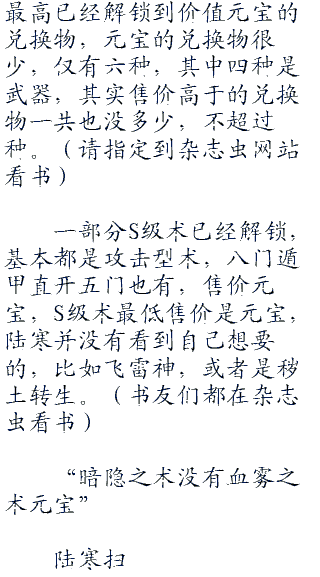 最高已经解锁到价值元宝的
兑换物，元宝的兑换物很
少，仅有六种，其中四种是
武器，其实售价高于的兑换
物一共也没多少，不超过
种。（请指定到杂志虫网站
看书）
一部分S级术已经解锁，
基本都是攻击型术，八门遁
甲直开五门也有，售价元
宝，S级术最低售价是元宝，
陆寒并没有看到自己想要
的，比如飞雷神，或者是秽
土转生。（书友们都在杂志
虫看书）
“暗隐之术没有血雾之
术元宝”
陆寒扫